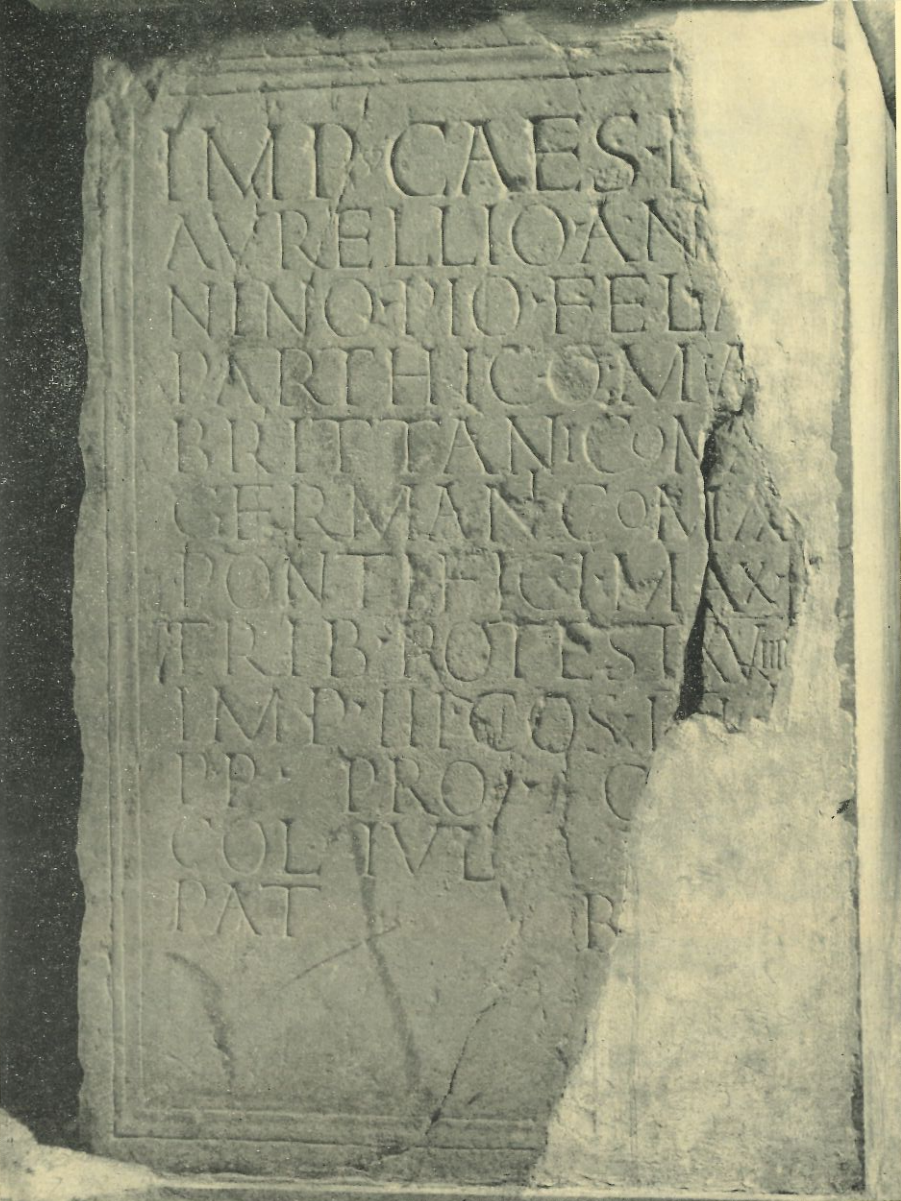 IMP CAES·
AVRELLIO·AN
NINO·PIO·FEL·
PARTHICO·MA
BRITTANICOM
GERMAN·COMAX
PONTIFICI·MAX·
TRIB·POTEST XVIIII
IMP·III·COS·
P·P· PRO
COL· IVL
PAT